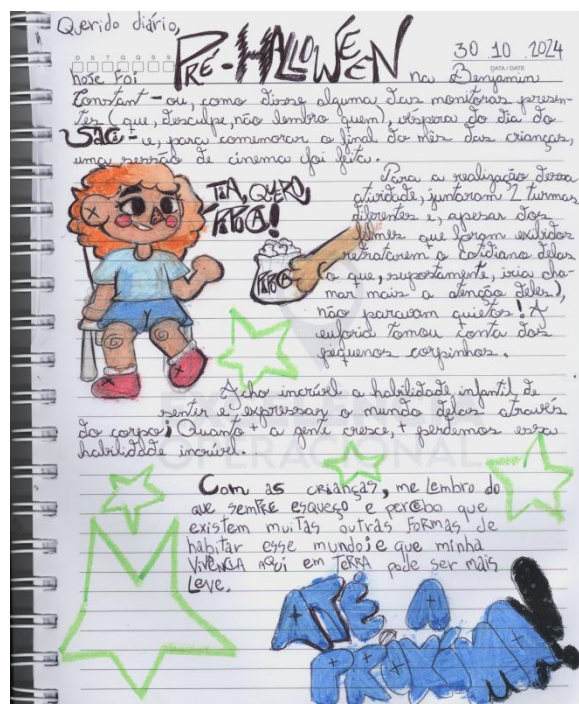 Querido diário,
30 10 2024
D S T Q Q S S
DATA / DATE
hoje foi PRÉ-HALLOWEEN na Benjamin
Constant - ou, como disse alguma das monitoras presen-
tes (que, desculpe, não lembro quem), véspera do dia do
SACI - e, para comemorar o final do mês das crianças,
uma sessão de cinema foi feita.
Para a realização dessa
atividade, juntaram 2 turmas
diferentes e, apesar dos
filmes que foram exibidos
retratarem o cotidiano delas
(o que, supostamente, iria cha-
mar mais a atenção deles),
não paravam quietos! A
euforia tomou conta dos
pequenos corpinhos.
TIA, QUERO
PIPOCA!
PIPOCA
Acho incrível a habilidade infantil de
sentir e expressar o mundo delas através
do corpo; Quanto + a gente cresce, + perdemos essa
habilidade incrível.
OPERACIONAL
Com as crianças, me lembro do
que sempre esqueço e percebo que
existem muitas outras formas de
habitar esse mundo; e que minha
vivência aqui em TERRA pode ser mais
leve.
ATÉ A
PRÓXIMA!